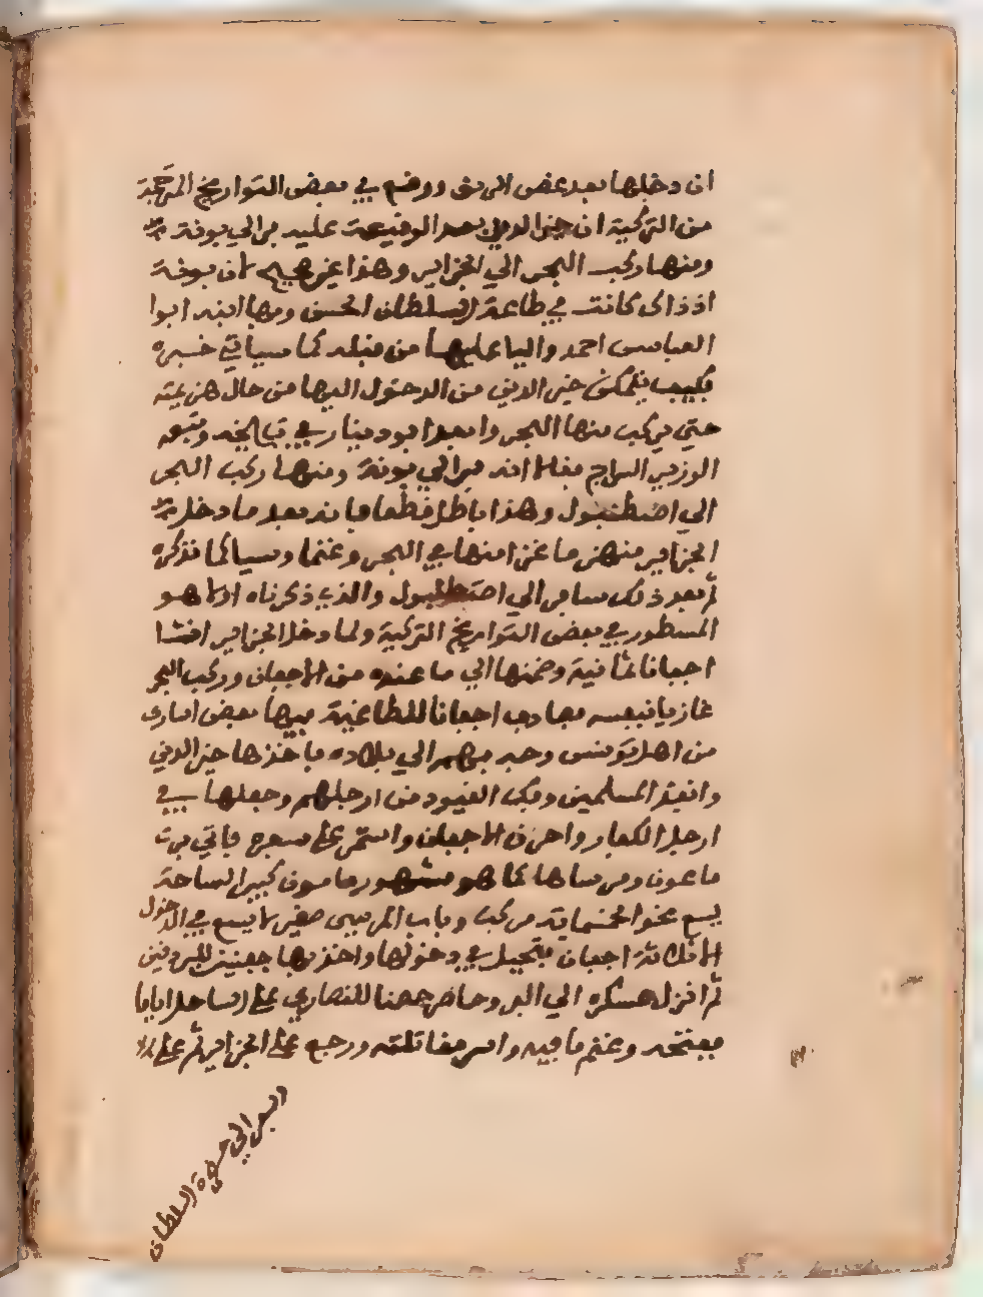 ان دخلها بعد عض الريق ووقع في بعض التواريخ المترجمة
من التركية ان خير الدين بعد الوقيعة عليه فر الي بونة
ومنها ركب البحر الي الجزاير وهذا غير صحيح لان بونة
اذ ذاك كانت في طاعة السلطان الحسن وبها ابنه ابوا
العباس احمد واليا عليها من قبله كما سياتي خبره
فكيف يتمكن خير الدين من الدخول اليها من حال هزيمته
حتي يركب منها البحر وابعد ابو دينار في تاليفه وتبعه
الوزير السراج فقالا انه فر الي بونة ومنها ركب البحر
الي اصطنبول وهذا باطل قطعا فانه بعد ما دخل
الجزاير منهزما غزا منها في البحر وغنما وسبا كما نذكره
ثم بعد ذلك سافر الي اصطنبول والذي ذكرناه اولا هو
المسطور في بعض التواريخ التركية ولما دخل الجزاير انشا
اجفانا ثمانية وضمنها الي ما عنده من الاجفان وركب البحر
غازيا بنفسه فصادف اجفانا للطاغية فيها بعض اسارى
من اهل تونس وجه بهم الي بلاده فاخذها خير الدين
وانقذ المسلمين وفك القيود من ارجلهم وجعلها في
ارجل الكفار واحرق الاجفان واستمر علي سفره فاتي مرت
ماعون ومرساها كما هو مشهور مامون كبير الساحة
يسع نحوا لخمسماية مركب وباب المرسى صغير لا يسع في الدخول
الا ثلاثة اجفان فتحيل في دخولها واخذ بها جفنين للبردقيز
ثم انزل عسكره الي البر وحاصر حصنا للنصاري علي الساحل اياما
ففتحه وغنم ما فيه واسر مقاتلته ورجع علي الجزاير ثم علي
البحر الي حضرة السلطان